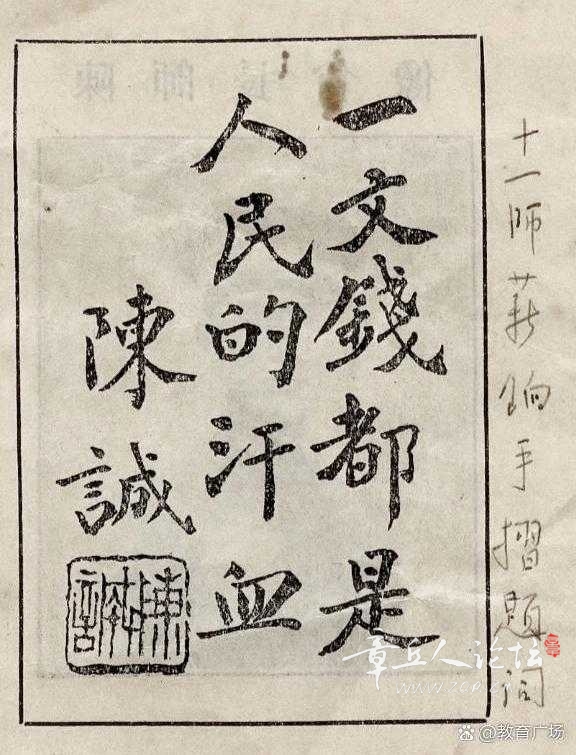 十一師薪饷手摺题词
一文錢都是
人民的汗血
陳誠
陳誠
章丘人论坛
@教育广场